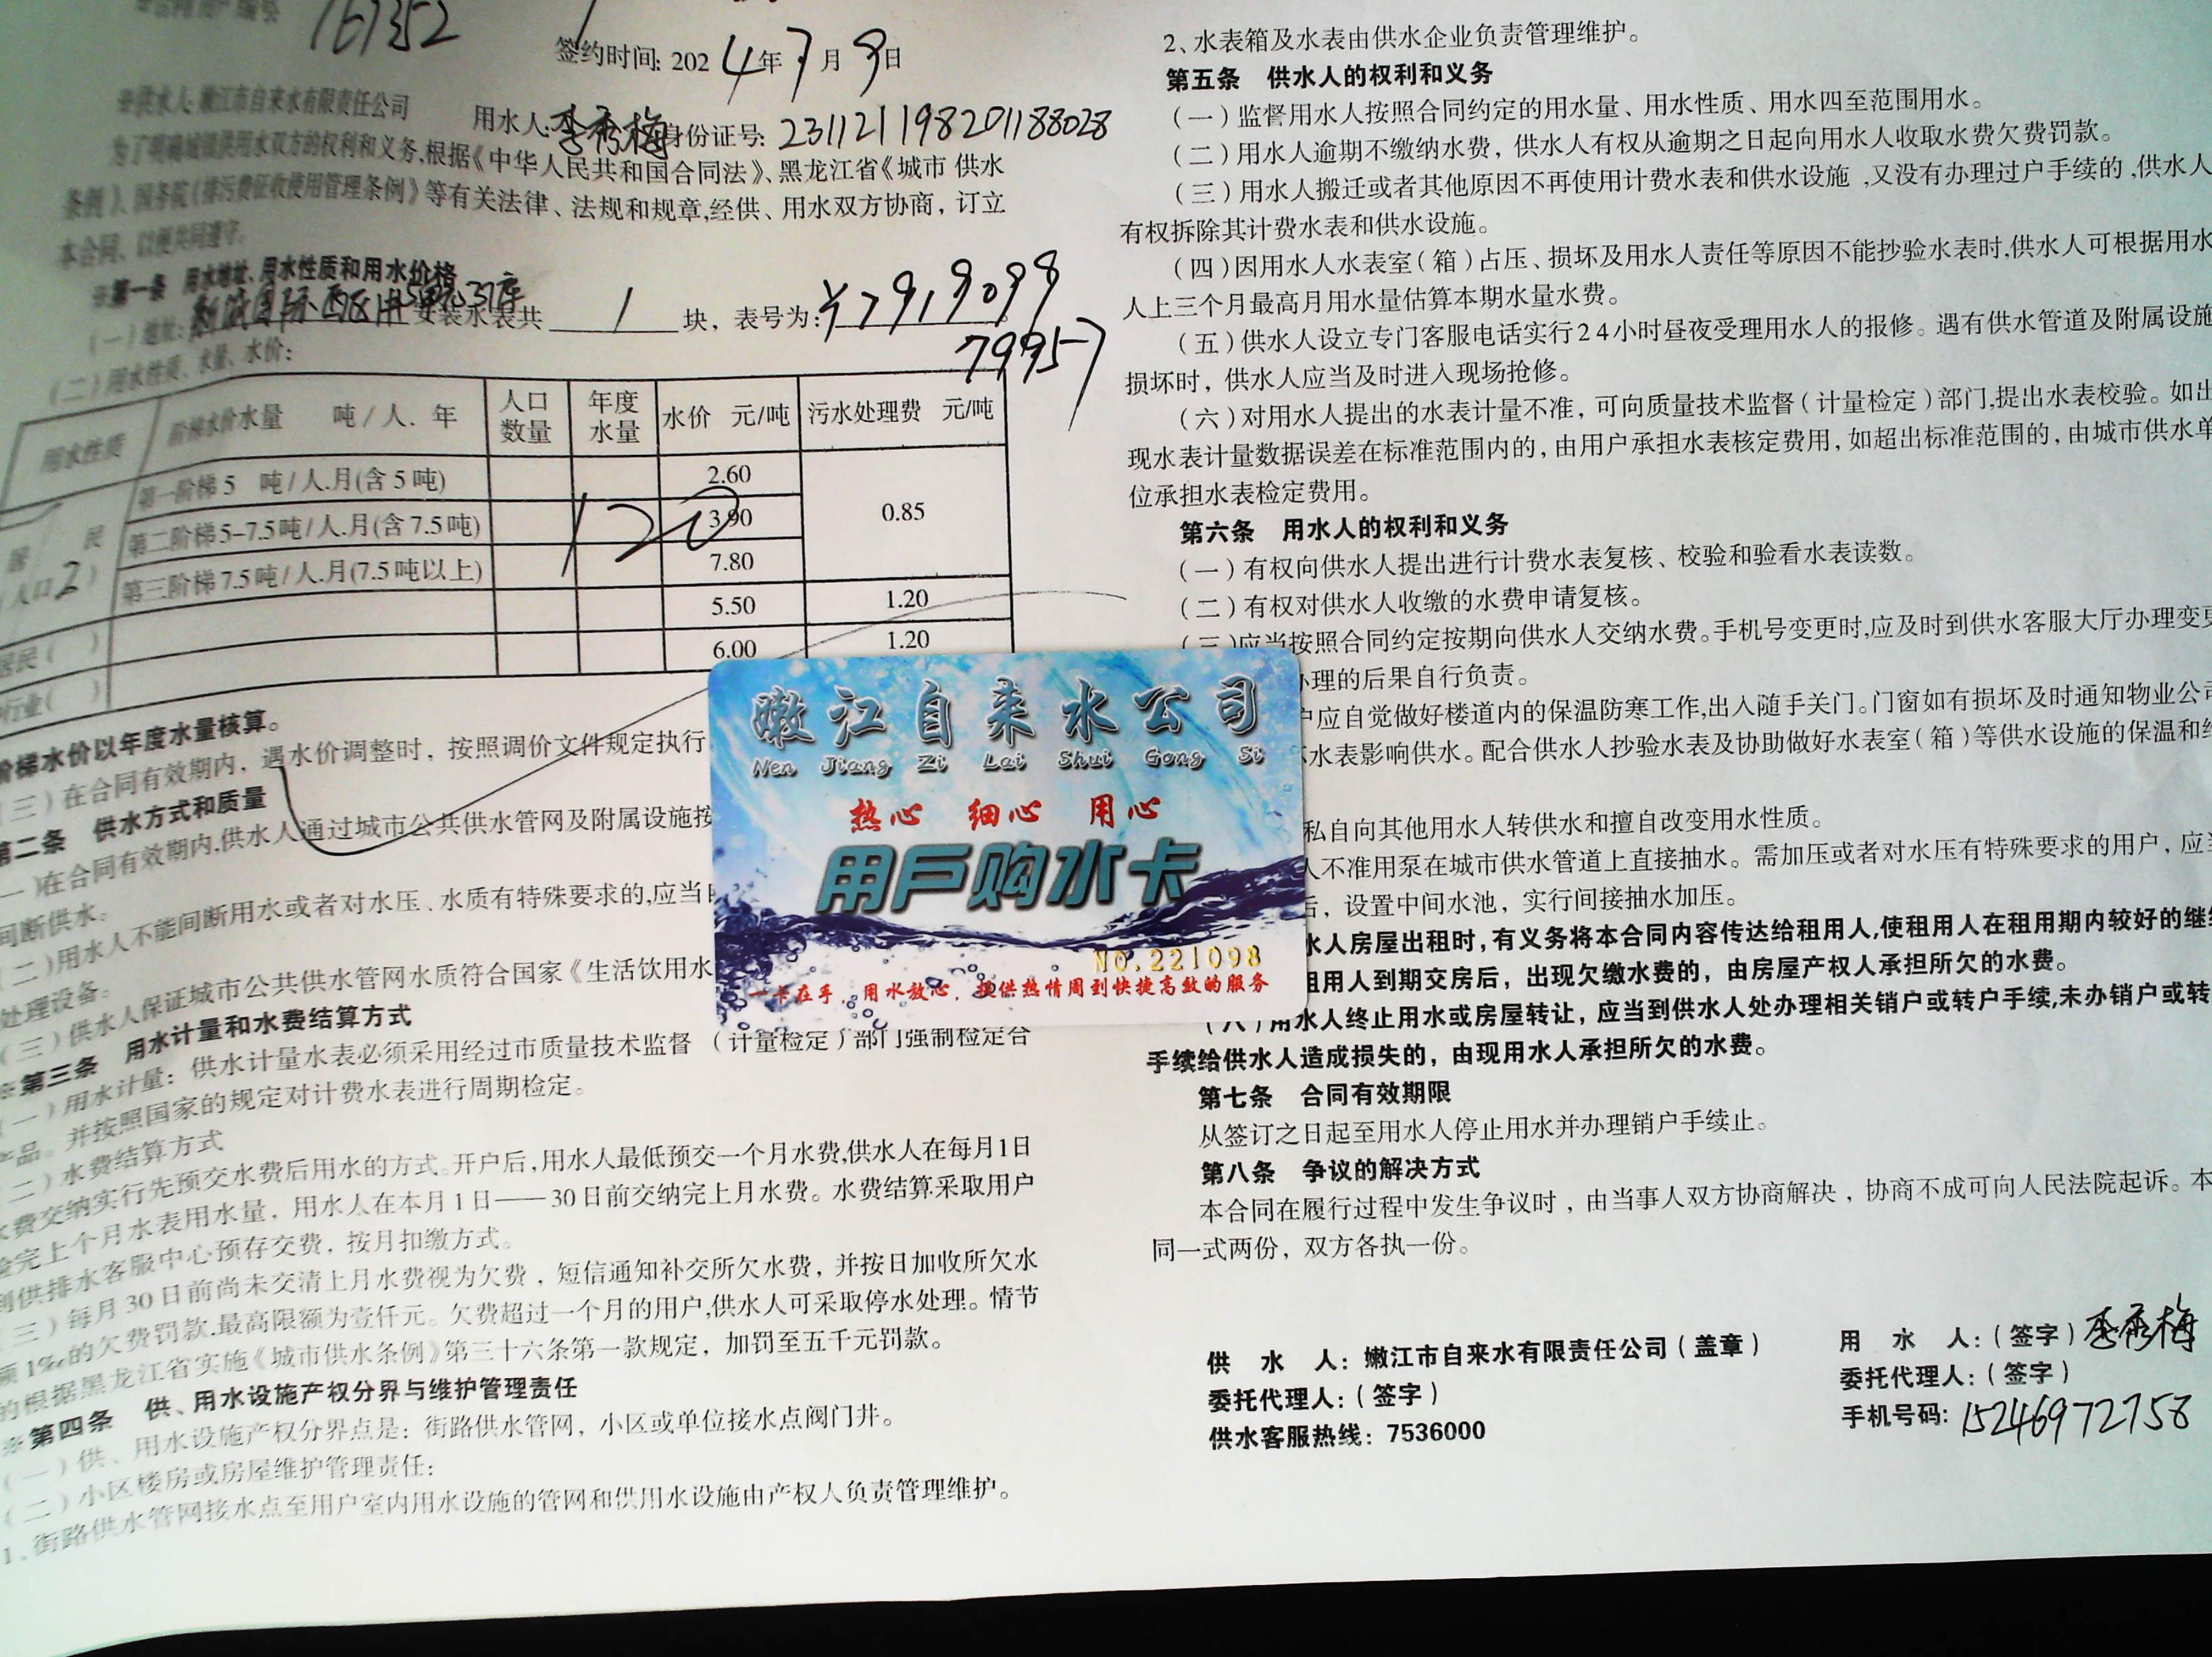 ※合同用户编号 161352
签约时间: 2024年7月9日
※供水人:嫩江市自来水有限责任公司
用水人:李秀梅 身份证号: 231121198201188028
为了明确城镇供用水双方的权利和义务,根据《中华人民共和国合同法》、黑龙江省《城市 供水
条例》、国务院《排污费征收使用管理条例》等有关法律、法规和规章,经供、用水双方协商，订立
本合同、以便共同遵守。
※第一条 用水地址、用水性质和用水价格
(一)地址: 安装水表共 1 块，表号为:
79957
(二)用水性质、水量、水价:
用水性质 阶梯水价水量 吨/人.年 人口数量 年度水量 水价 元/吨 污水处理费 元/吨
居民 人口2) 第一阶梯5 吨/人.月(含5吨) 2.60 0.85
第二阶梯5-7.5吨/人.月(含7.5吨) 120 3.90
第三阶梯7.5吨/人.月(7.5吨以上) 7.80
居民( ) 5.50 1.20
行业( ) 6.00 1.20
阶梯水价以年度水量核算。
(三)在合同有效期内，遇水价调整时，按照调价文件规定执行
第二条 供水方式和质量
一)在合同有效期内,供水人通过城市公共供水管网及附属设施按
间断供水。
(二)用水人不能间断用水或者对水压、水质有特殊要求的,应当
处理设备。
(三)供水人保证城市公共供水管网水质符合国家《生活饮用水
※第三条 用水计量和水费结算方式
(一)用水计量：供水计量水表必须采用经过市质量技术监督（计量检定）部门强制检定合
产品。并按照国家的规定对计费水表进行周期检定。
二)水费结算方式
水费交纳实行先预交水费后用水的方式。开户后,用水人最低预交一个月水费,供水人在每月1日
验完上个月水表用水量，用水人在本月1日——30日前交纳完上月水费。水费结算采取用户
到供排水客服中心预存交费，按月扣缴方式。
三)每月30日前尚未交清上月水费视为欠费，短信通知补交所欠水费，并按日加收所欠水
额1‰的欠费罚款.最高限额为壹仟元。欠费超过一个月的用户,供水人可采取停水处理。情节
的根据黑龙江省实施《城市供水条例》第三十六条第一款规定，加罚至五千元罚款。
※第四条 供、用水设施产权分界与维护管理责任
(一)供、用水设施产权分界点是：街路供水管网，小区或单位接水点阀门井。
(二)小区楼房或房屋维护管理责任：
1、街路供水管网接水点至用户室内用水设施的管网和供用水设施由产权人负责管理维护。
2、水表箱及水表由供水企业负责管理维护。
第五条 供水人的权利和义务
(一)监督用水人按照合同约定的用水量、用水性质、用水四至范围用水。
(二)用水人逾期不缴纳水费，供水人有权从逾期之日起向用水人收取水费欠费罚款。
(三)用水人搬迁或者其他原因不再使用计费水表和供水设施,又没有办理过户手续的,供水人
有权拆除其计费水表和供水设施。
(四)因用水人水表室(箱)占压、损坏及用水人责任等原因不能抄验水表时,供水人可根据用水
人上三个月最高月用水量估算本期水量水费。
(五)供水人设立专门客服电话实行24小时昼夜受理用水人的报修。遇有供水管道及附属设施
损坏时，供水人应当及时进入现场抢修。
(六)对用水人提出的水表计量不准，可向质量技术监督(计量检定)部门,提出水表校验。如出
现水表计量数据误差在标准范围内的,由用户承担水表核定费用,如超出标准范围的,由城市供水单
位承担水表检定费用。
第六条 用水人的权利和义务
(一)有权向供水人提出进行计费水表复核、校验和验看水表读数。
(二)有权对供水人收缴的水费申请复核。
(三)应当按照合同约定按期向供水人交纳水费。手机号变更时,应及时到供水客服大厅办理变更
办理的后果自行负责。
户应自觉做好楼道内的保温防寒工作,出入随手关门。门窗如有损坏及时通知物业公司
水表影响供水。配合供水人抄验水表及协助做好水表室(箱)等供水设施的保温和
私自向其他用水人转供水和擅自改变用水性质。
人不准用泵在城市供水管道上直接抽水。需加压或者对水压有特殊要求的用户，应
后，设置中间水池，实行间接抽水加压。
水人房屋出租时,有义务将本合同内容传达给租用人,使租用人在租用期内较好的继
租用人到期交房后，出现欠缴水费的，由房屋产权人承担所欠的水费。
(八)用水人终止用水或房屋转让，应当到供水人处办理相关销户或转户手续,未办销户或转
手续给供水人造成损失的，由现用水人承担所欠的水费。
第七条 合同有效期限
从签订之日起至用水人停止用水并办理销户手续止。
第八条 争议的解决方式
本合同在履行过程中发生争议时，由当事人双方协商解决，协商不成可向人民法院起诉。本
同一式两份，双方各执一份。
供 水 人：嫩江市自来水有限责任公司(盖章)
委托代理人：(签字)
供水客服热线：7536000
用 水 人：(签字)李秀梅
委托代理人：(签字)
手机号码：15246972758
嫩江自来水公司
Nen Jiang Zi Lai Shui Gong Si
热心 细心 用心
用户购水卡
NO.221098
一卡在手，用水放心，提供热情周到快捷高效的服务